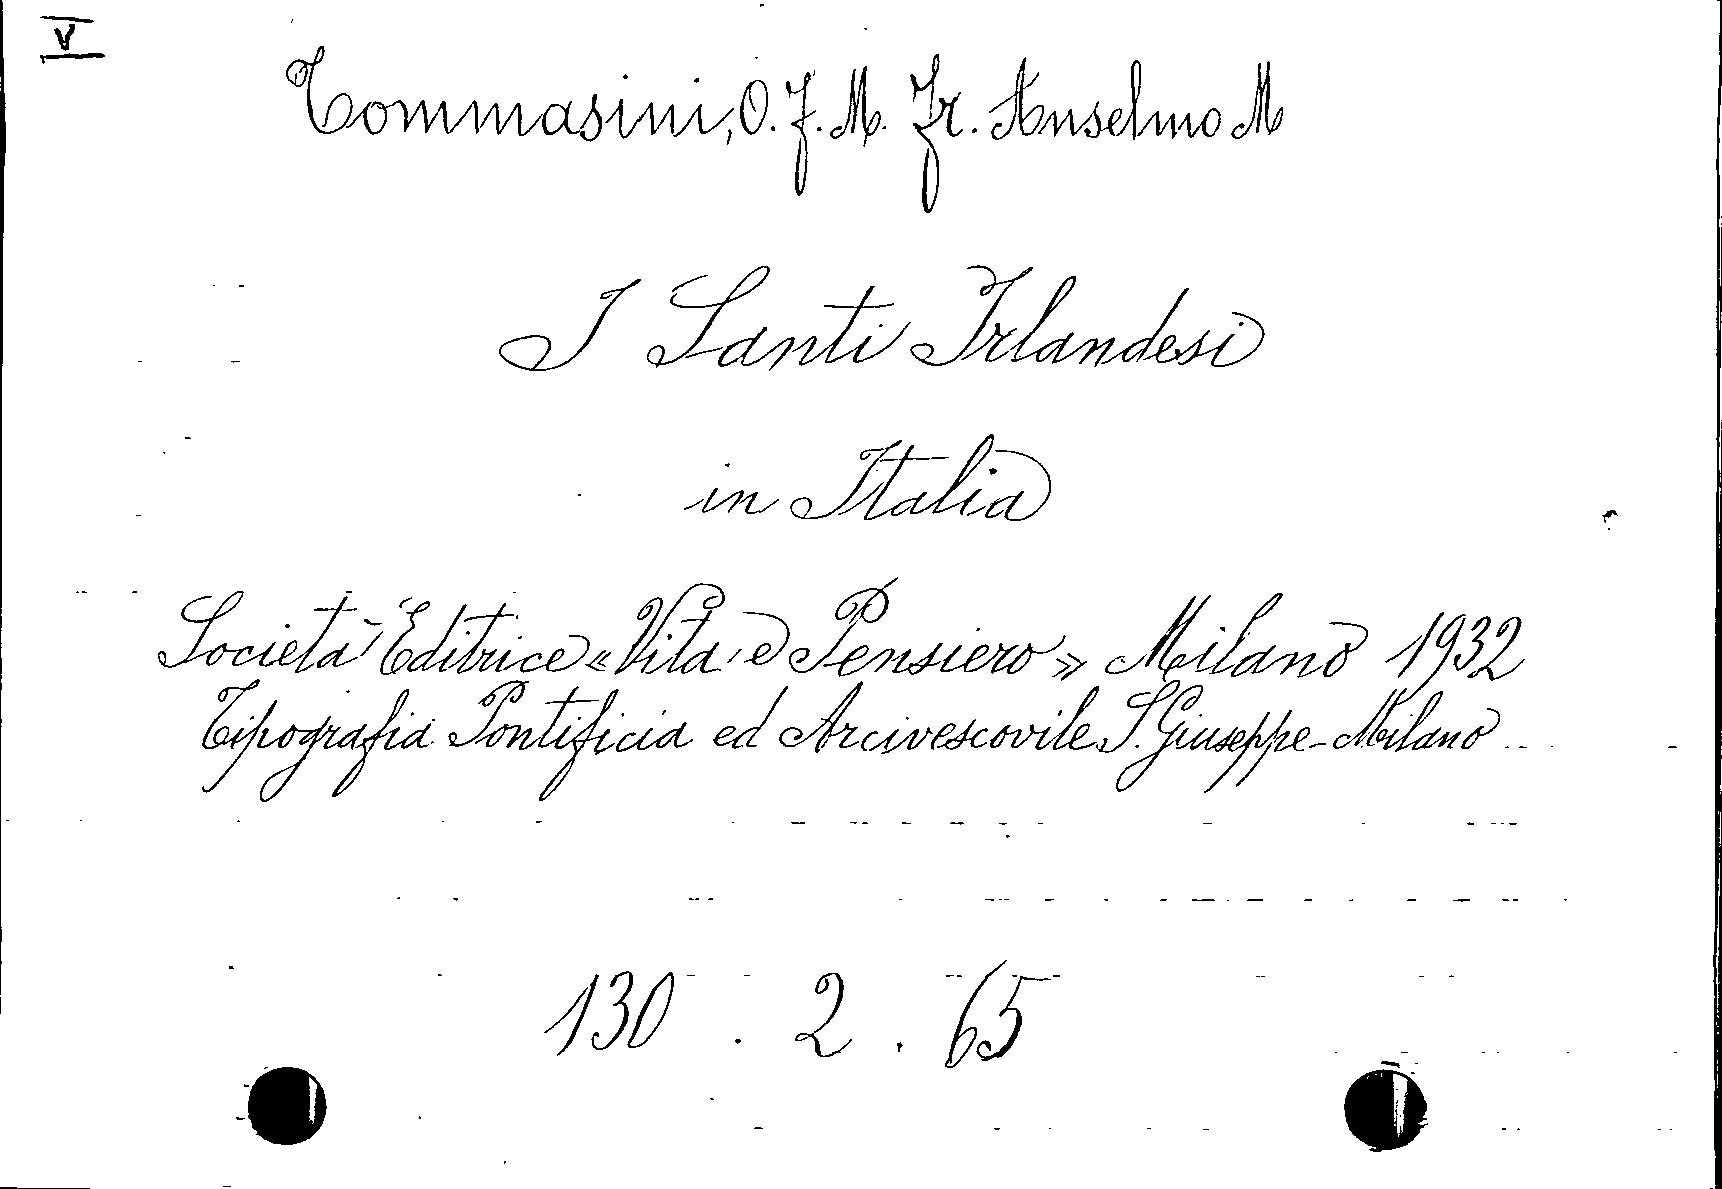 V
Tommasini, O. F. M. Fr. Anselmo M
I Santi Irlandesi
in Italia
Società Editrice « Vita e Pensiero » Milano 1932
Tipografia Pontificia ed Arcivescovile S. Giuseppe - Milano
130 . 2 . 65